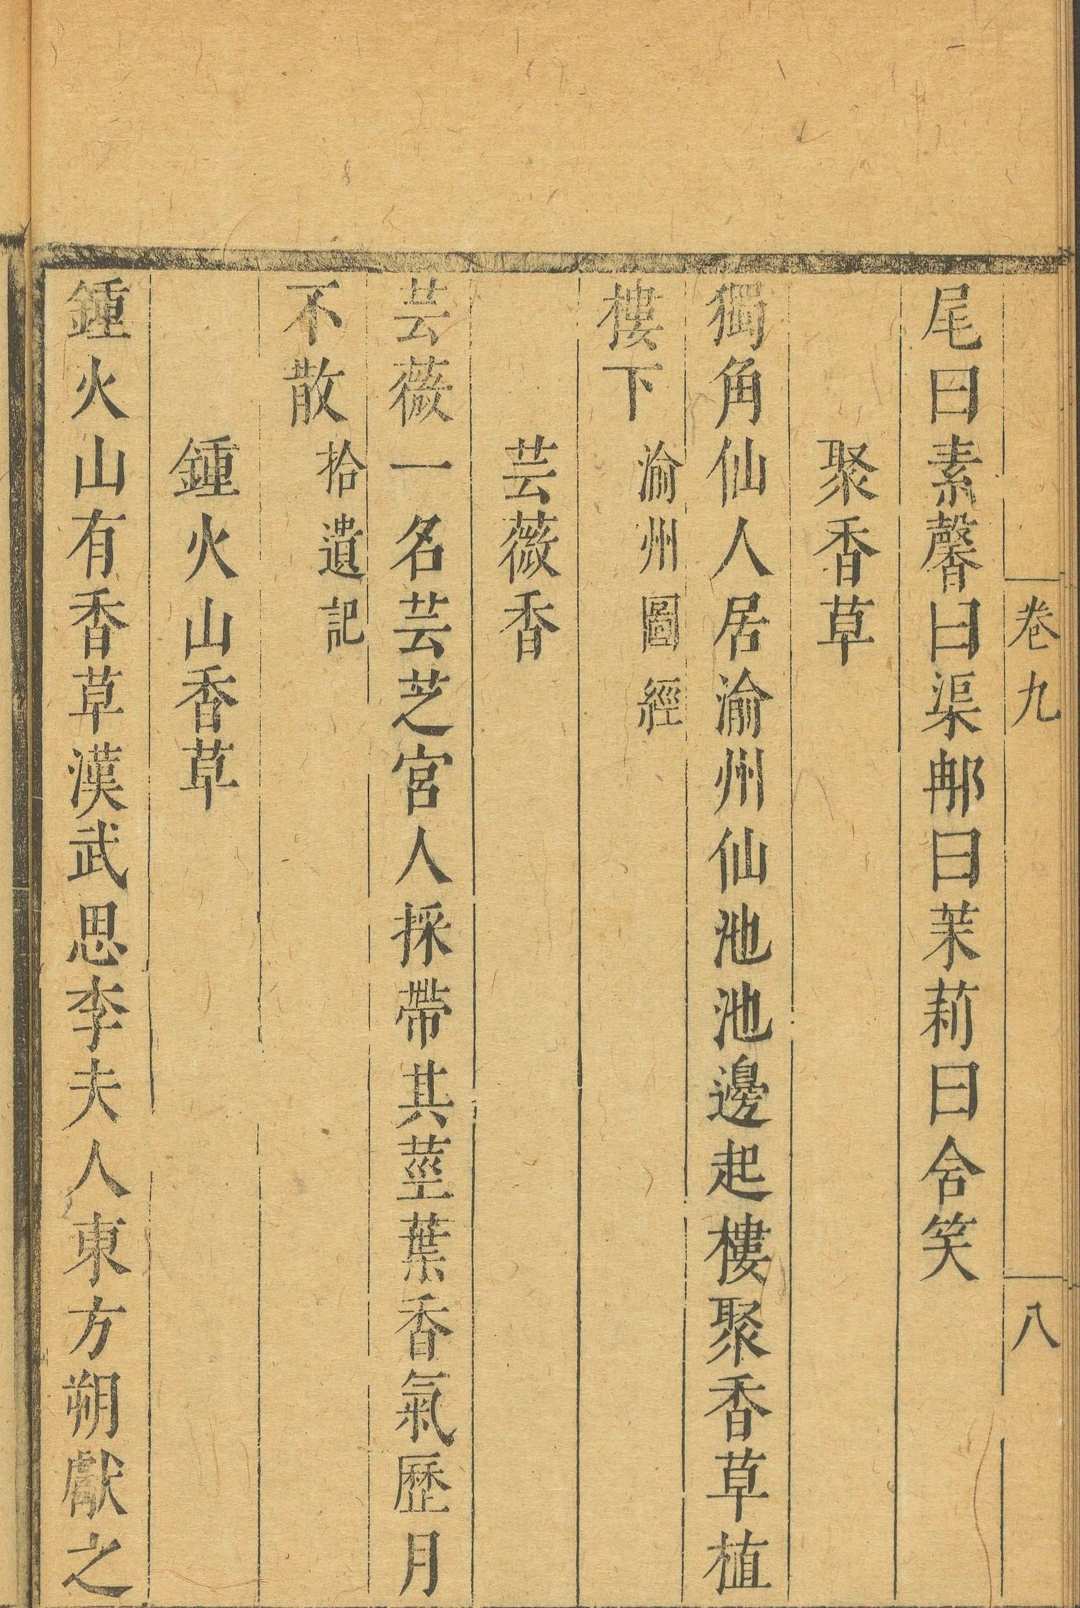 卷九
八
尾曰素馨曰渠𨚗曰茉莉曰含笑
聚香草
獨角仙人居渝州仙池池邊起樓聚香草植
樓下渝州圖經
芸薇香
芸薇一名芸芝宮人採帶其莖葉香氣歷月
不散拾遺記
鍾火山香草
鍾火山有香草漢武思李夫人東方朔獻之